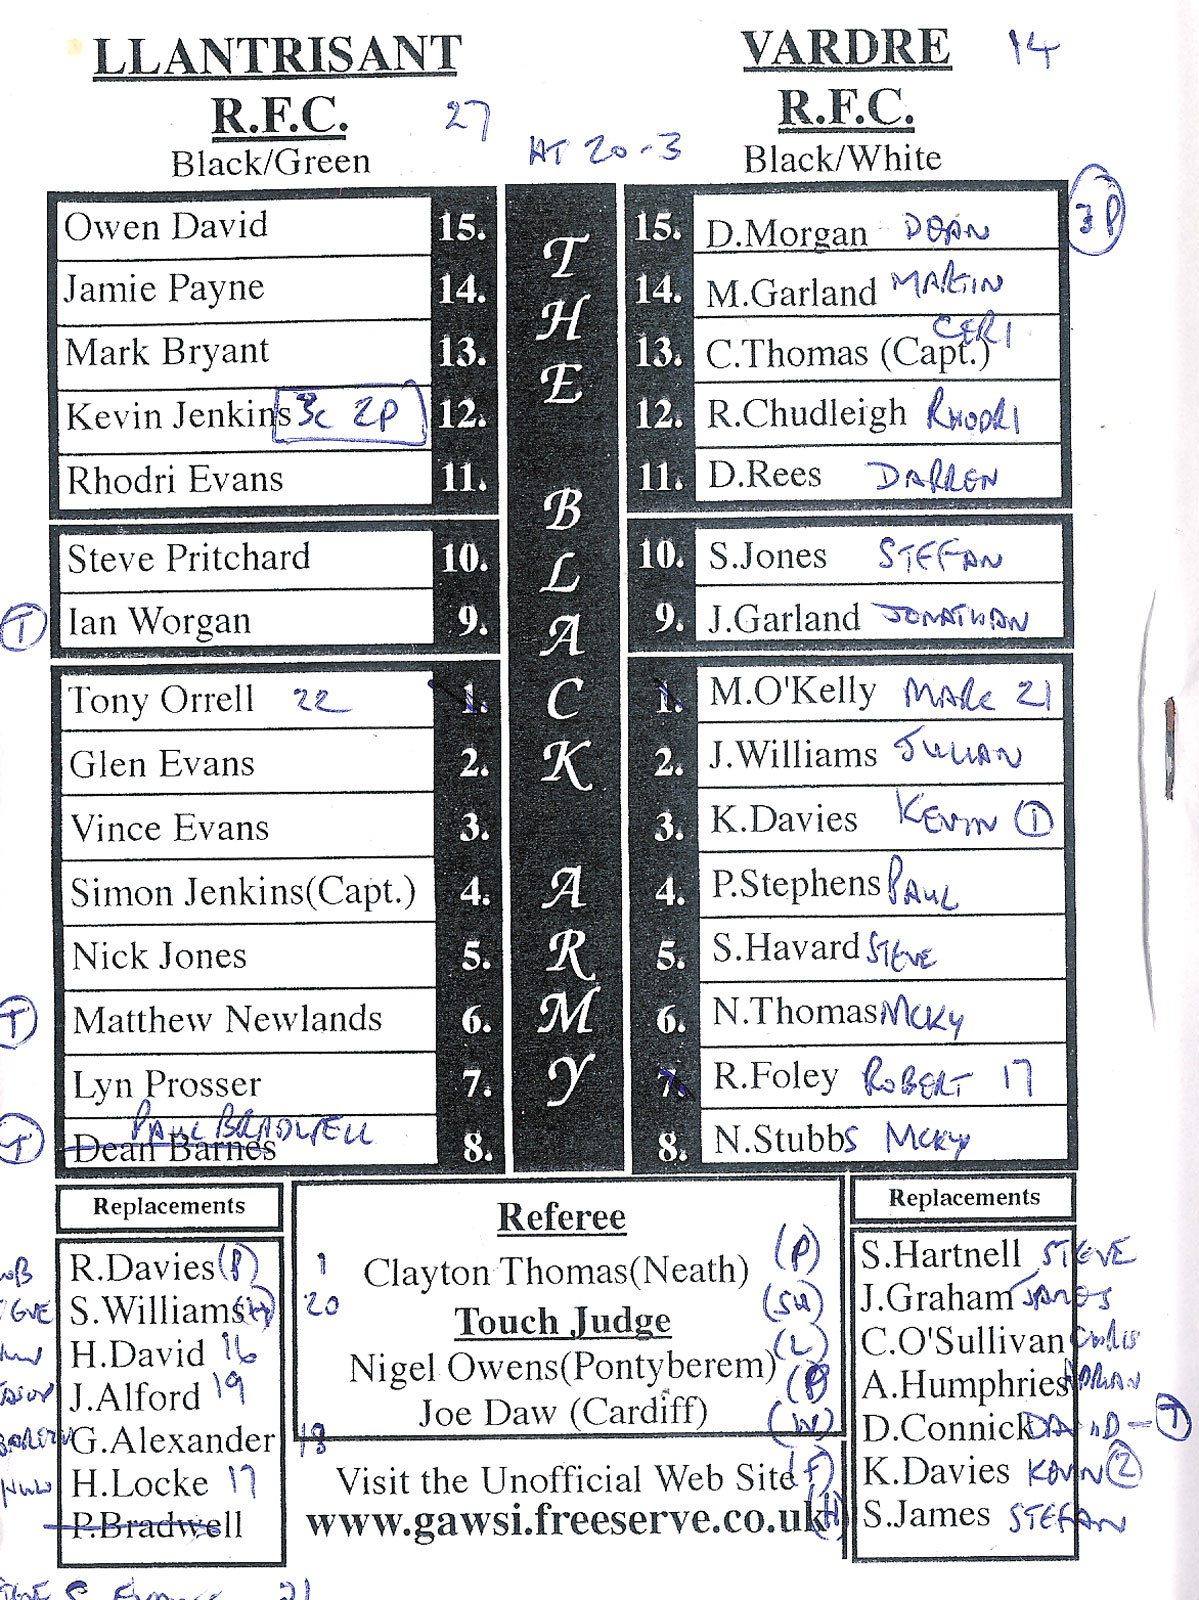 LLANTRISANT
R.F.C. 27
Black/Green
HT 20-3
VARDRE 14
R.F.C.
Black/White
Owen David 15.
Jamie Payne 14.
Mark Bryant 13.
Kevin Jenkins 3c 2P 12.
Rhodri Evans 11.
Steve Pritchard 10.
T Ian Worgan 9.
Tony Orrell 22 1.
Glen Evans 2.
Vince Evans 3.
Simon Jenkins(Capt.) 4.
Nick Jones 5.
T Matthew Newlands 6.
Lyn Prosser 7.
PAUL BRADWELL
T Dean Barnes 8.
THE BLACK ARMY
15. D.Morgan DEAN 3P
14. M.Garland MARTIN
CERI
13. C.Thomas (Capt.)
12. R.Chudleigh RHODRI
11. D.Rees DARREN
10. S.Jones STEFAN
9. J.Garland JONATHAN
1. M.O'Kelly MARC 21
2. J.Williams JULIAN
3. K.Davies KEVIN 1
4. P.Stephens PAUL
5. S.Havard STEVE
6. N.Thomas MCKY
7. R.Foley ROBERT 17
8. N.Stubbs MCKY
Replacements
R.Davies (P) 1
S.Williams (H) 20
H.David 16
J.Alford 19
G.Alexander 18
H.Locke HUW 17
P.Bradwell
21
Referee
Clayton Thomas(Neath)
Touch Judge
Nigel Owens(Pontyberem)
Joe Daw (Cardiff)
Visit the Unofficial Web Site
www.gawsi.freeserve.co.uk
Replacements
(P) S.Hartnell STEVE
(SH) J.Graham JAMES
(L) C.O'Sullivan CHRIS
(P) A.Humphries ADRIAN
(W) D.Connick DAVID - T
(F) K.Davies KEVIN 2
(H) S.James STEFAN